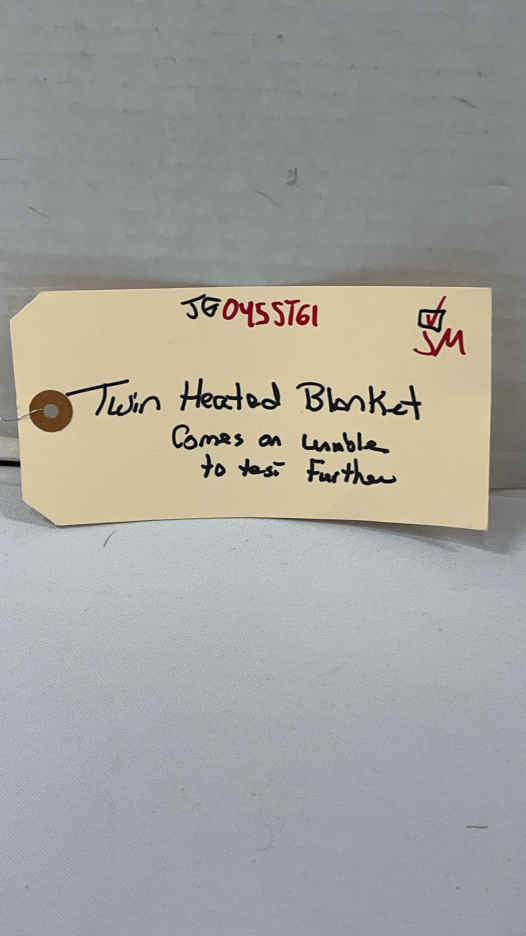 JG 045ST61
SM
Twin Heated Blanket
Comes on unable
to test Further